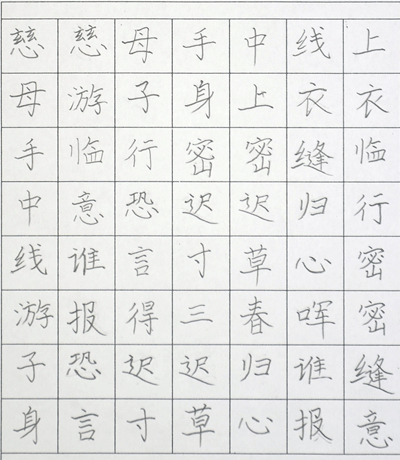 慈慈母手中线上
母游子身上衣衣
手临行密密缝临
中意恐迟迟归行
线谁言寸草心密
游报得三春晖密
子恐迟迟归谁缝
身言寸草心报意